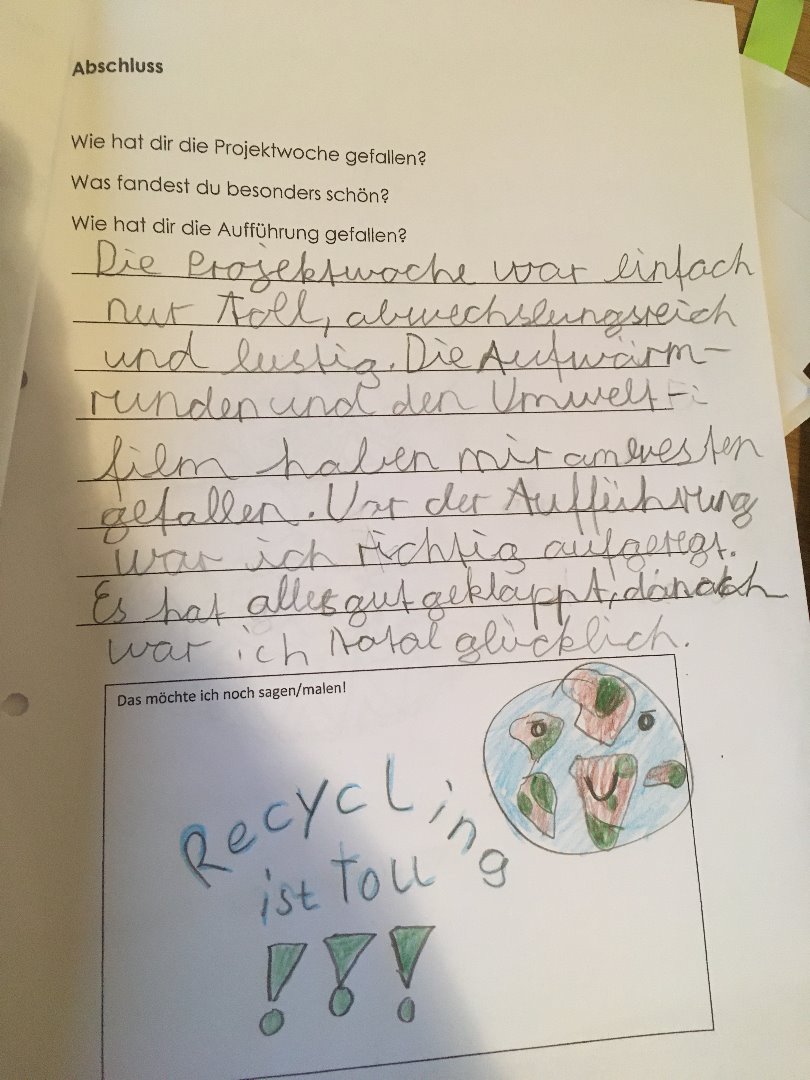 Abschluss
Wie hat dir die Projektwoche gefallen?
Was fandest du besonders schön?
Wie hat dir die Aufführung gefallen?
Die Projektwoche war einfach
nur toll, abwechslungsreich
und lustig. Die Aufwärm-
runden und den Umwelt-
film haben mir am besten
gefallen. Vor der Aufführung
war ich richtig aufgeregt.
Es hat alles gut geklappt, danach
war ich total glücklich.
Das möchte ich noch sagen/malen!
Recycling
ist Toll
!!!